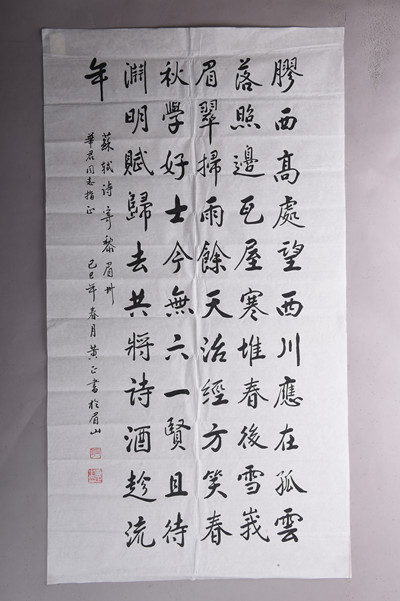 膠西高處望西川應在孤雲
落照邊瓦屋寒堆春後雪峩
眉翠掃雨餘天治經方笑春
秋學好士今無六一賢且待
淵明賦歸去共將诗酒趁流
年
蘇軾诗寄黎眉州
華君同志指正
己巳年春月黄正書於眉山